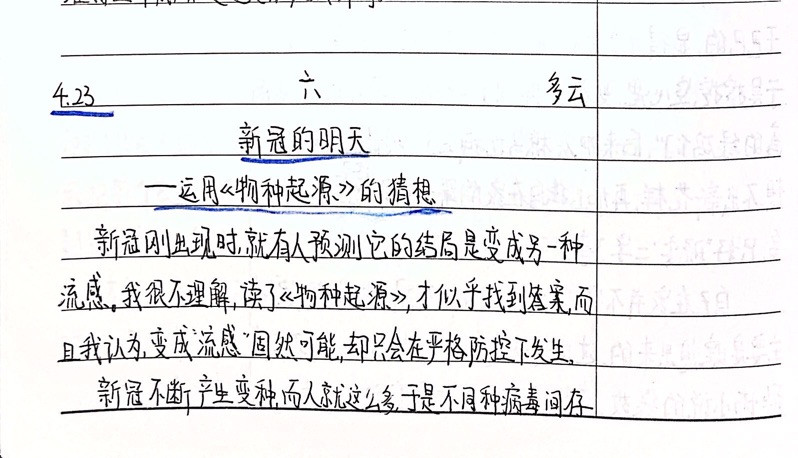 4.23 六 多云
新冠的明天
——运用《物种起源》的猜想
新冠刚出现时,就有人预测它的结局是变成另一种
流感。我很不理解,读了《物种起源》,才似乎找到答案,而
且我认为,变成“流感”固然可能,却只会在严格防控下发生。
新冠不断产生变种,而人就这么多,于是不同种病毒间存